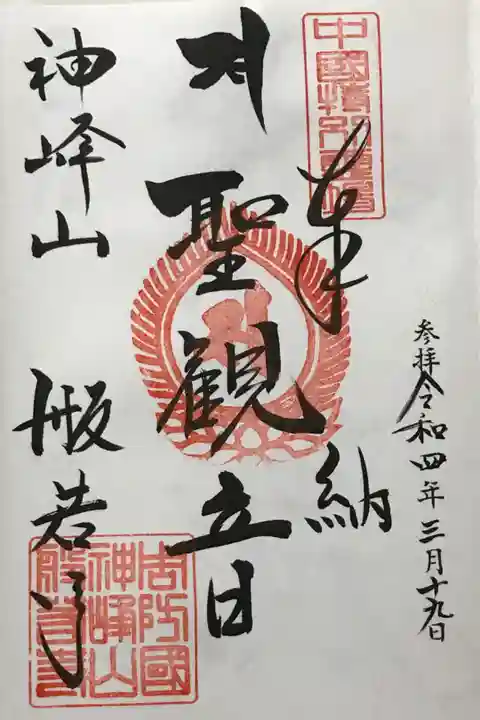 中國特別霊場
奉納
参拝令和四年三月十九日
聖観音
神峰山 般若寺
周防國
神峰山
般若寺